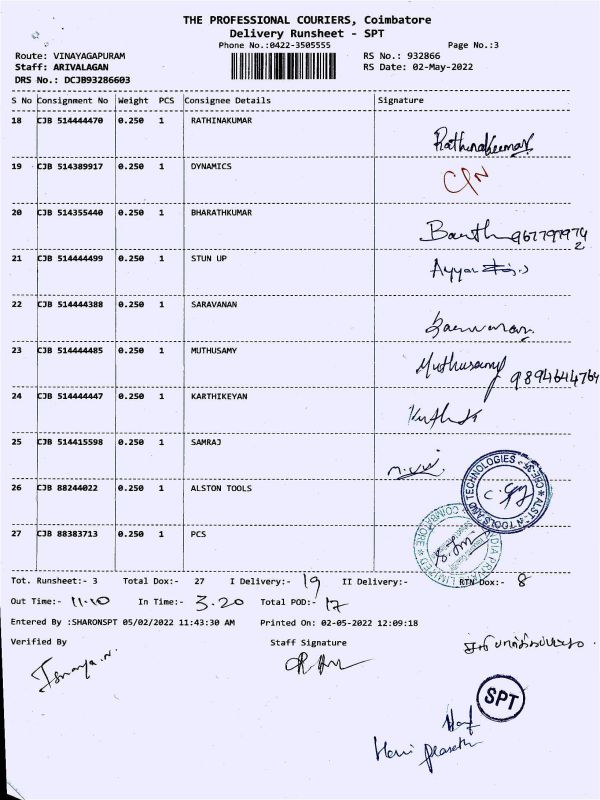 THE PROFESSIONAL COURIERS, Coimbatore
Delivery Runsheet - SPT
Phone No.:0422-3505555 Page No.:3
Route: VINAYAGAPURAM RS No.: 932866
Staff: ARIVALAGAN RS Date: 02-May-2022
DRS No.: DCJB93286603
S No Consignment No Weight PCS Consignee Details Signature
18 CJB 514444470 0.250 1 RATHINAKUMAR
Rathinakumar
19 CJB 514389917 0.250 1 DYNAMICS
20 CJB 514355440 0.250 1 BHARATHKUMAR
21 CJB 514444499 0.250 1 STUN UP
22 CJB 514444388 0.250 1 SARAVANAN
23 CJB 514444485 0.250 1 MUTHUSAMY
Muthusamy
9894644764
24 CJB 514444447 0.250 1 KARTHIKEYAN
25 CJB 514415598 0.250 1 SAMRAJ
26 CJB 88244022 0.250 1 ALSTON TOOLS
ALST-N TOOLS AND TECHNOLOGIES CBE-35
27 CJB 88383713 0.250 1 PCS
INDIA PRIVATE LIMITED COIMBATORE
Tot. Runsheet:- 3 Total Dox:- 27 I Delivery:- 19 II Delivery:- RTN Dox:- 8
Out Time:- 11.10 In Time:- 3.20 Total POD:- 17
Entered By :SHARONSPT 05/02/2022 11:43:30 AM Printed On: 02-05-2022 12:09:18
Verified By Staff Signature
SPT
Hari Prasath